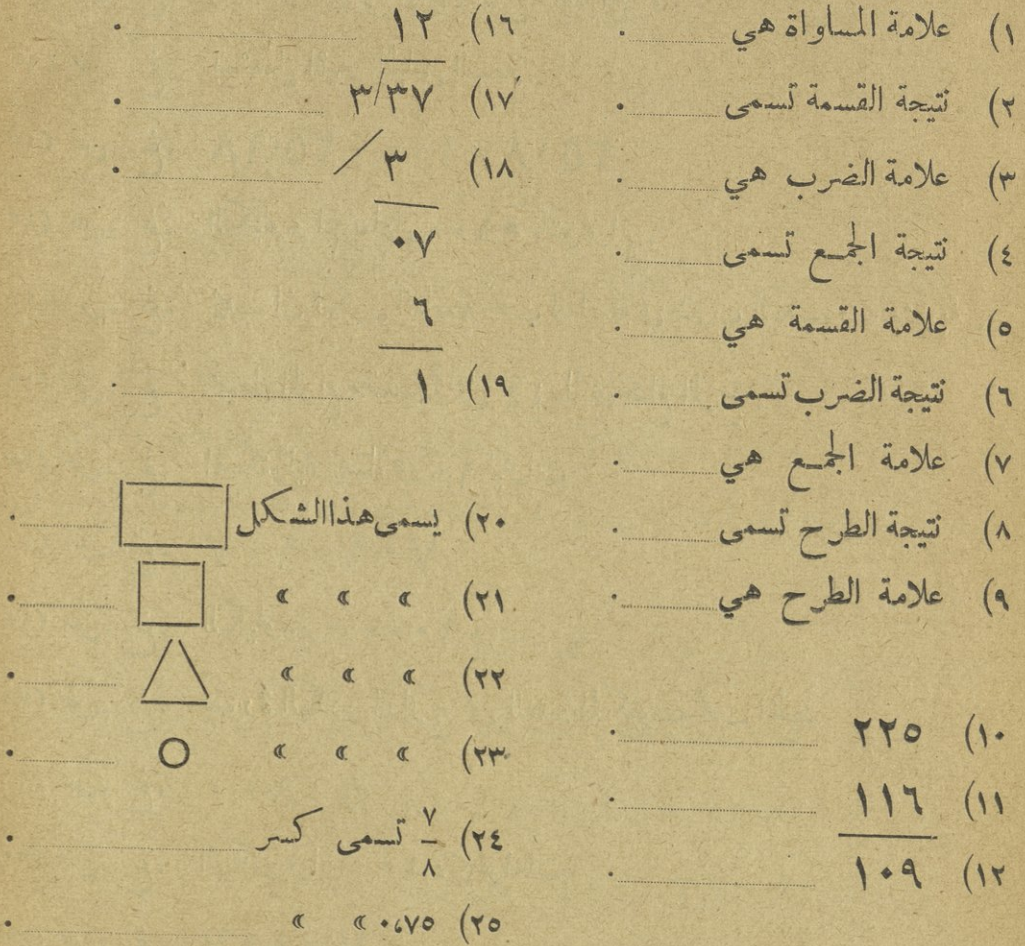 ١) علامة المساواة هي .......... .
٢) نتيجة القسمة تسمى .......... .
٣) علامة الضرب هي .......... .
٤) نتيجة الجمع تسمى .......... .
٥) علامة القسمة هي .......... .
٦) نتيجة الضرب تسمى .......... .
٧) علامة الجمع هي .......... .
٨) نتيجة الطرح تسمى .......... .
٩) علامة الطرح هي .......... .
١٠) ٢٢٥ .......... .
١١) ١١٦ .......... .
١٢) ١٠٩ .......... .
١٦) ١٢ .......... .
١٧) ٣/٣٧ .......... .
١٨) ٣ / .......... .
٠٧
٦
١٩) ١ .......... .
٢٠) يسمى هذا الشكل .......... .
٢١) » » » .......... .
٢٢) » » » .......... .
٢٣) » » » .......... .
٢٤) ٧/٨ تسمى كسر .......... .
٢٥) ٠،٧٥ » » .......... .